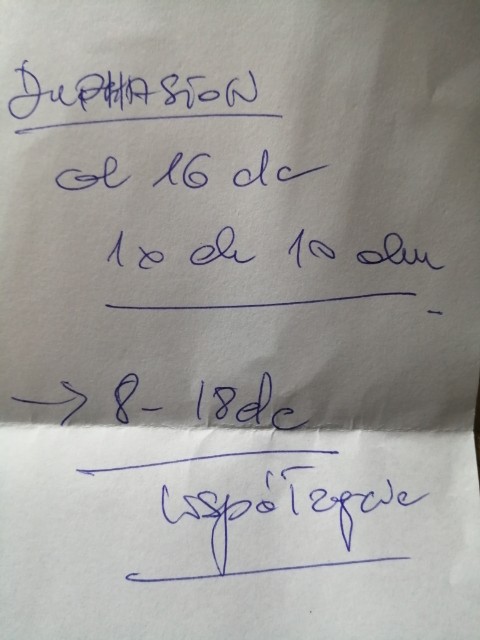 DUPHASTON
od 16 dc
1x dz 10 dni
→ 8-18dc
współżycie